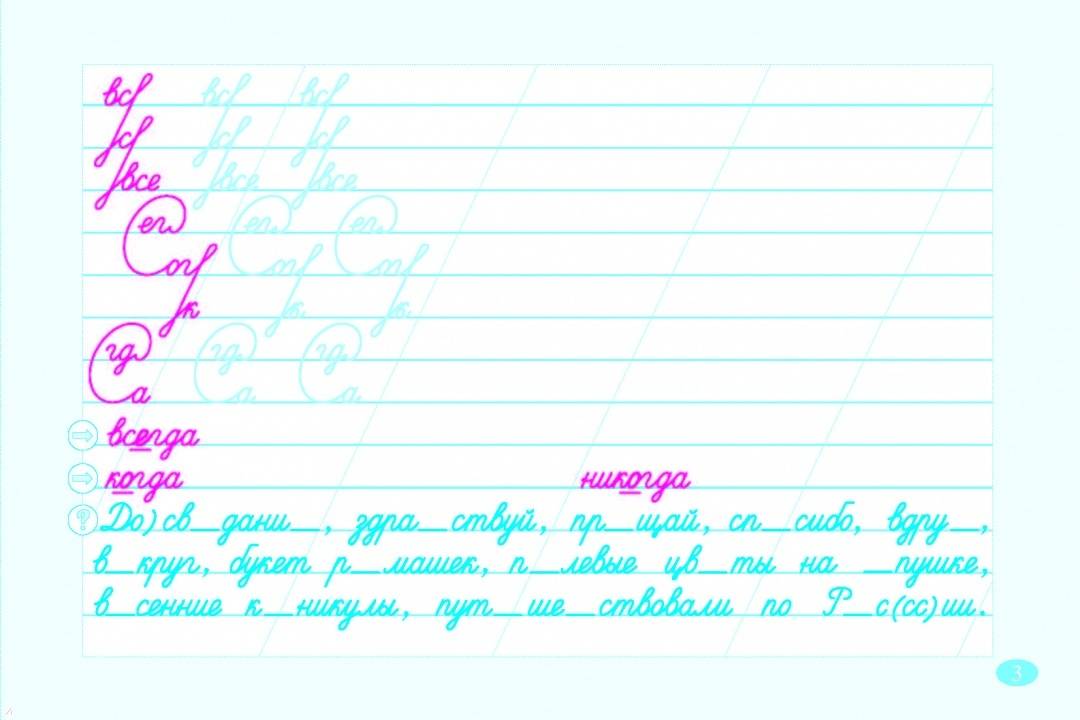 вс вс вс
с с с
все все все
ег ег ег
ог ог ог
к к к
гд гд гд
а а а
всегда
когда никогда
До)св_дани_, здра_ствуй, пр_щай, сп_сибо, вдру_,
в_круг, букет р_машек, п_левые цв_ты на _пушке,
в_сенние к_никулы, пут_ше_ствовали по Р_с(сс)ии.
3